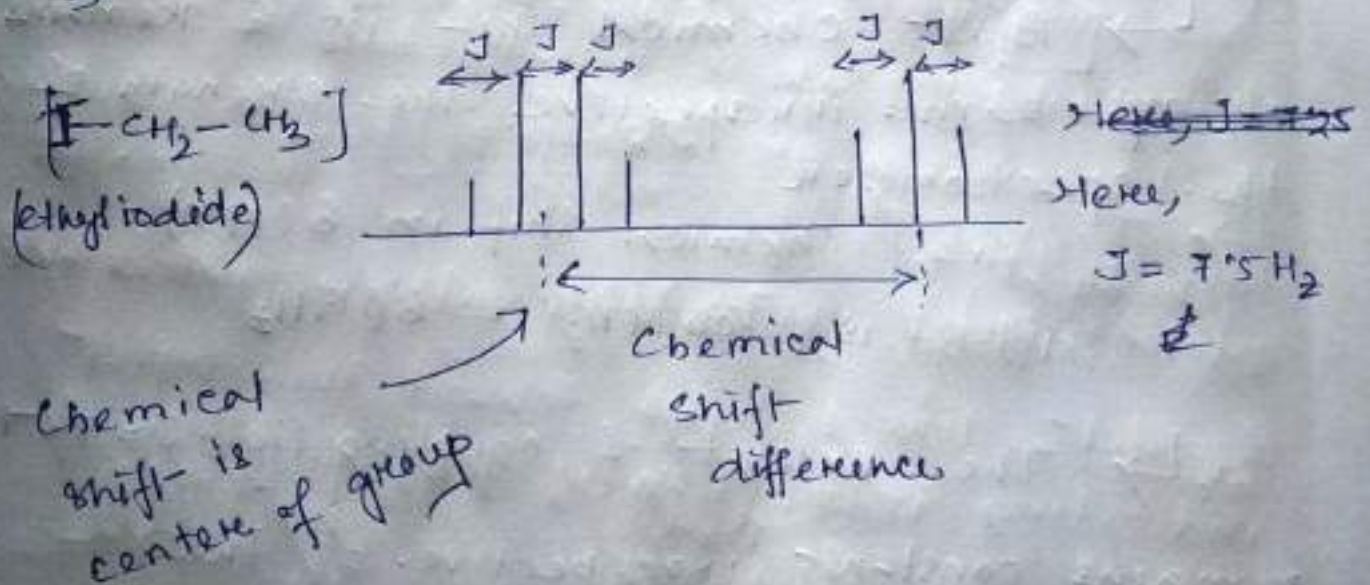 J J J J J
[I-CH₂-CH₃]
(ethyl iodide)
Here, J = 725
Here,
J = 7.5 H₂
Chemical
shift
difference
Chemical
shift is
centere of group